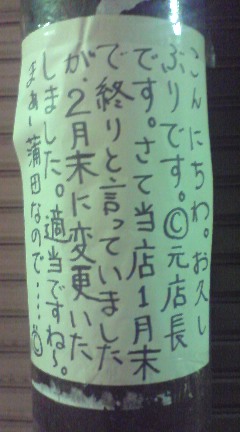 こんにちわ。お久し
ぶりです。©元店長
です。さて当店1月末
で終りと言っていました
が、2月末に変更いた
しました。適当ですね〜。
まぁー蒲田なので…©